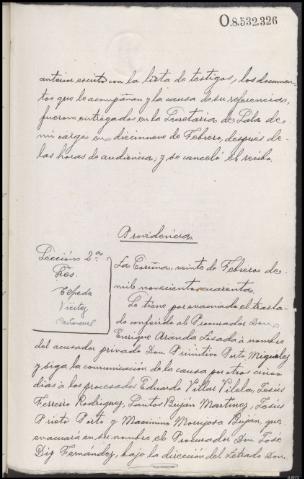 O.8.532.326
anterior escrito con la lista de testigos, los documen-
tos que lo acompañan y la causa de su referencia,
fueron entregados en la Secretaría de Sala de
mi cargo en diecinueve de Febrero, después de
las horas de audiencia, y se canceló el recibo.
Providencia
Sección 2ª
Sres.
Cepeda
Vieites
La Coruña, veinte de Febrero de
mil novecientos cuarenta.
Se tiene por evacuado el trasla-
do conferido al Procurador Don
Enrique Aranda Losada à nombre
del acusador privado Don Primitivo Porto Miguelez
y siga la comunicación de la causa por otros cinco
días a los procesados Eduardo Villar Vilela, Jesús
Ferreiro Rodriguez, Santos Buján Martinez, Jesús
Prieto Porto y Maximino Mourenza Buján, que
evacuará en su nombre el Procurador Don José
Diz Fernandez, bajo la dirección del Letrado Don